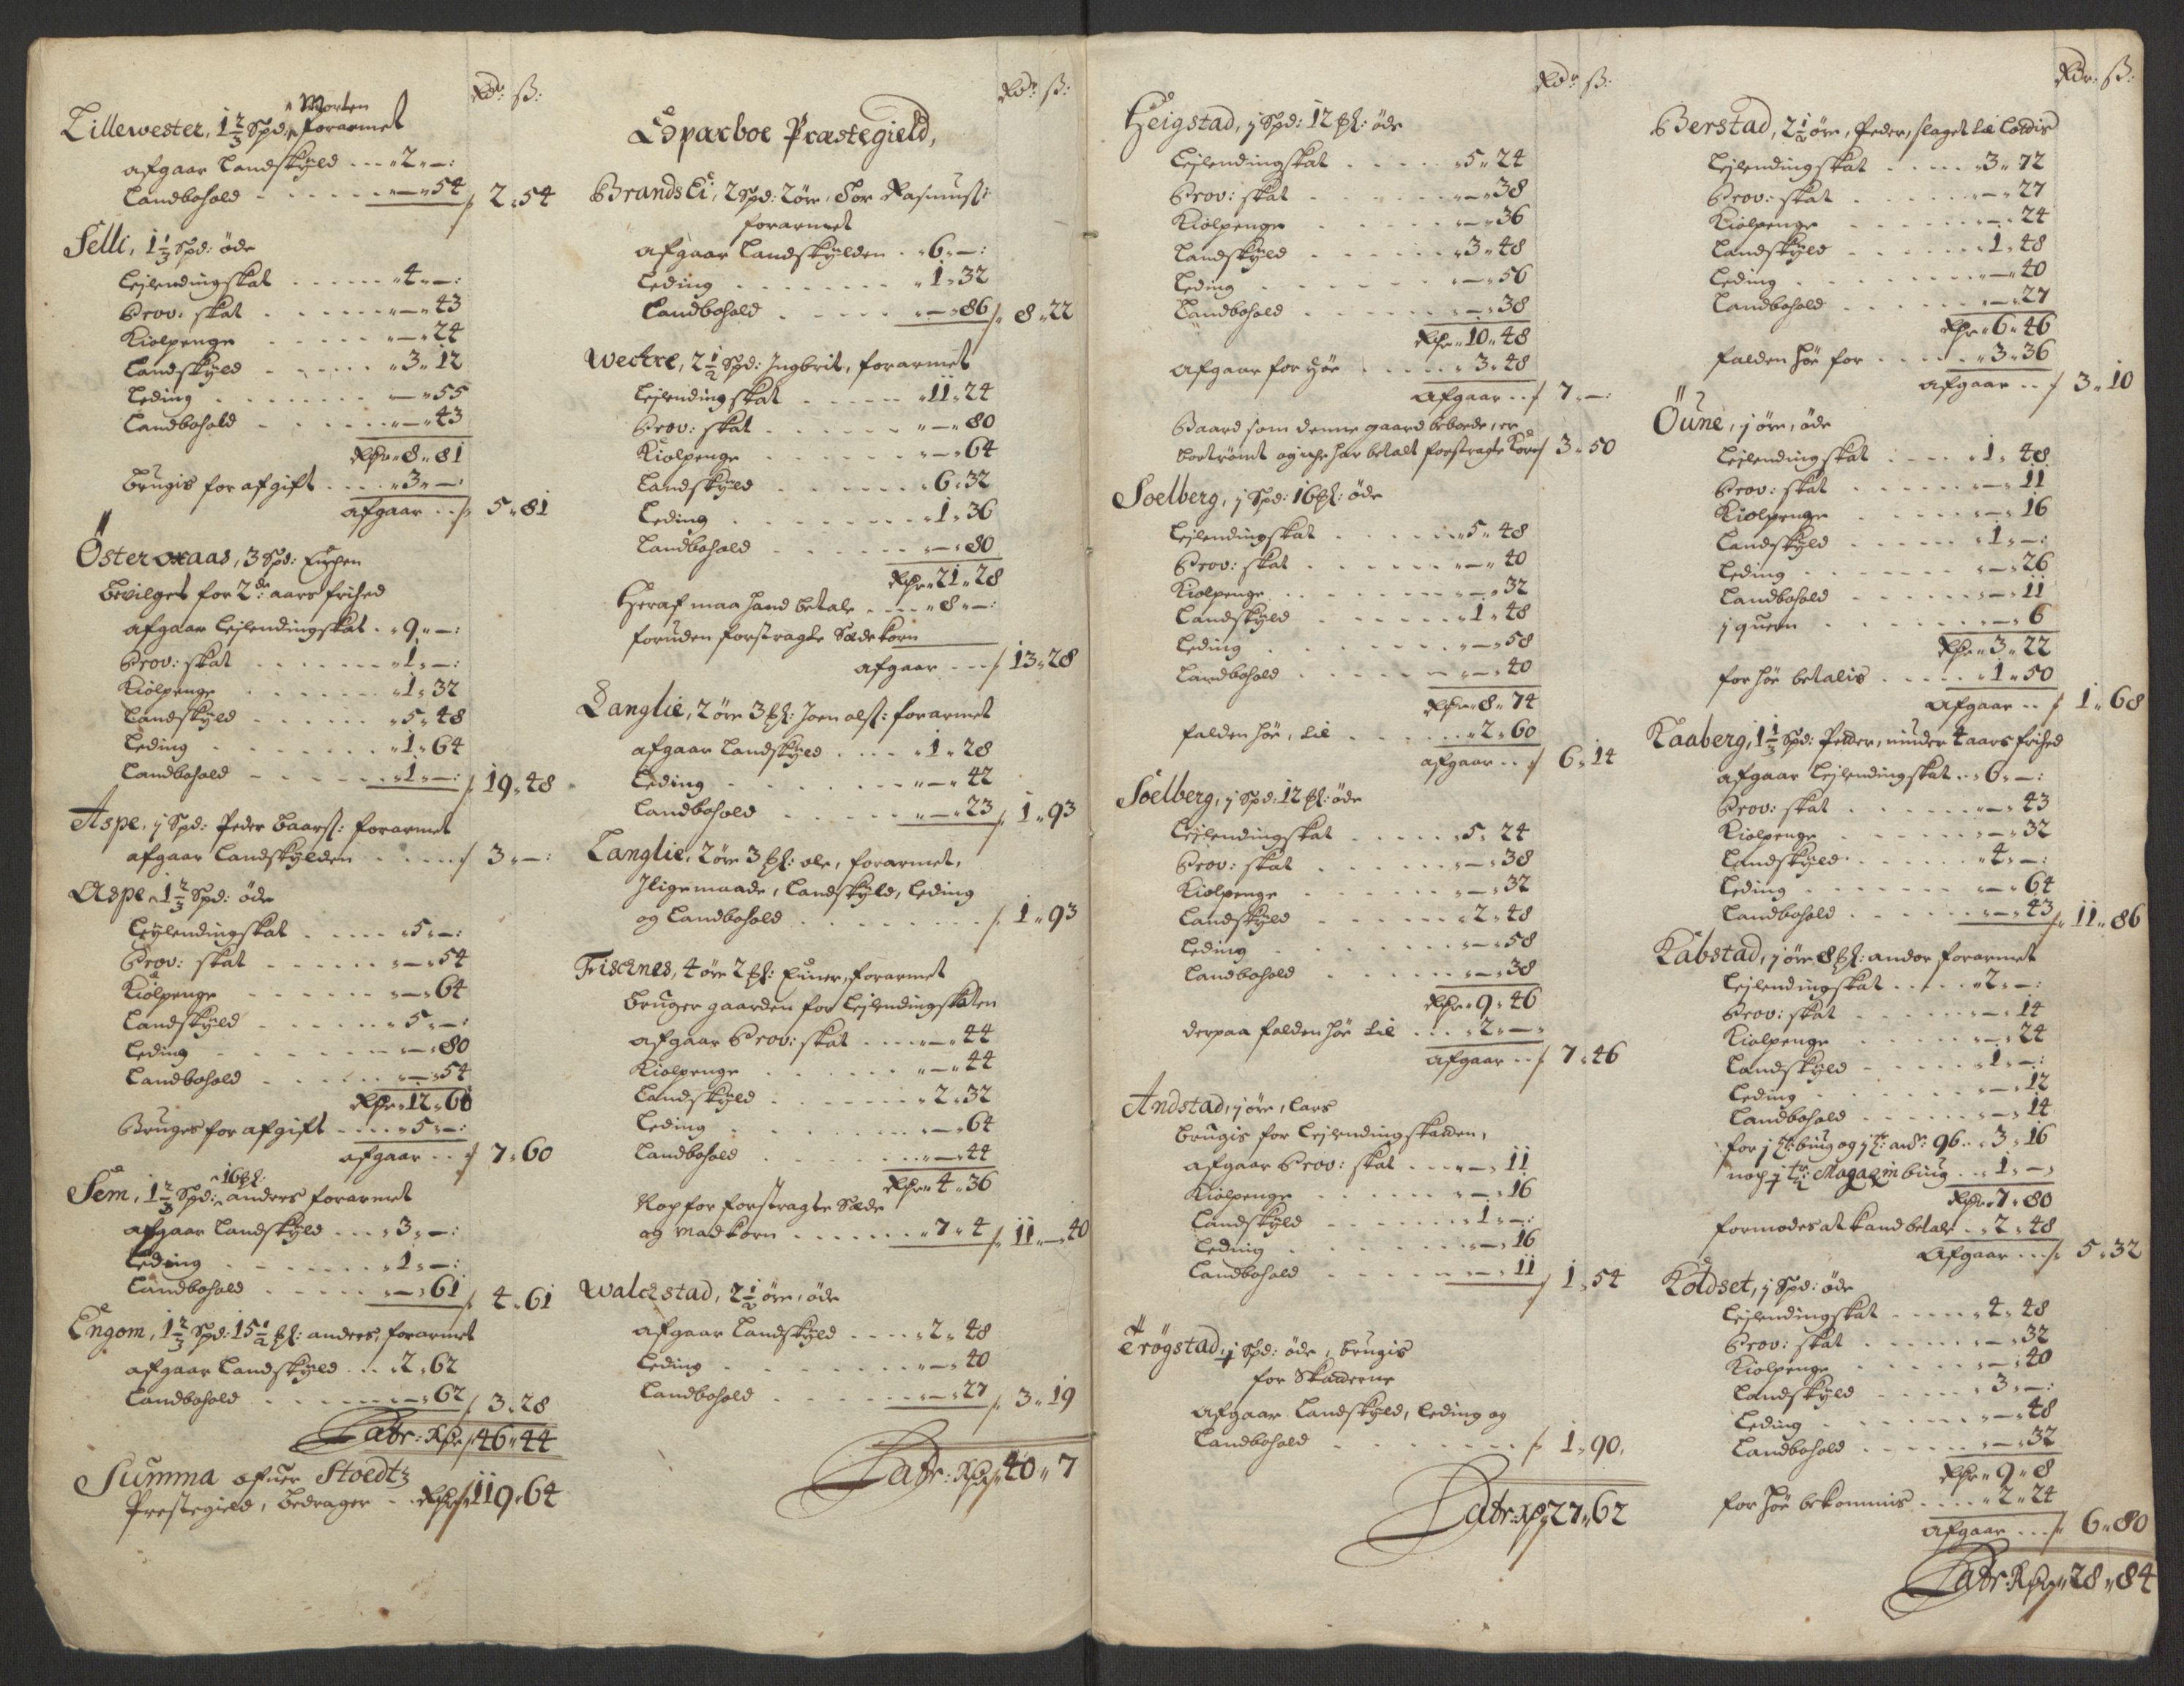 Rdr ß:
Morten
Lillewester, 1 2/3 Spd: forarmet
afgaar Landskyld . . . 2 „ — :
Landbohold . . . . . „ — „ 54 / 2 „ 54
Selli, 1 1/3 Spd: öde
Lejlendingskat . . . . . 4 „ — :
Prov: skat . . . . . „ — „ 43
Kiolpenge . . . . . „ — „ 24
Landskyld . . . . . „ 3 „ 12
Leding . . . . . „ — „ 55
Landbohold . . . . . „ — „ 43
Rdr „ 8 „ 81
brugis for afgift . . . „ 3 „ — :
afgaar . . / 5 „ 81
Österaas, 3 Spd:
bevilget for 2de: aars frihed
afgaar Lejlendingskat . „ 9 „ — :
Prov: skat . . . . . „ 1 „ — :
Kiölpenge . . . . . „ 1 „ 32
Landskyld . . . . . „ 5 „ 48
Leding . . . . . „ 1 „ 64
Landbohold . . . . . „ 1 „ — : / 19 „ 48
Aspe, j Spd: Peder Baarss: forarmet
afgaar Landskylden . . . . / 3 „ — :
Aspe 1 2/3 Spd: öde
Leÿlendingskat . . . . „ 5 „ — :
Prov: skat . . . . . „ — „ 54
Kiölpenge . . . . . „ — „ 64
Landskyld . . . . . „ 5 „ — :
Leding . . . . . „ — „ 80
Landbohold . . . . . „ — „ 54
Rdr „ 12 „ 60
Bruges for afgift . . . . „ 5 „ — :
afgaar . . / 7 „ 60
Sem, 1 2/3 Spd: 16 : anders forarmet
afgaar Landskyld . . . „ 3 „ — :
Leding . . . . . „ 1 „ — :
Landbohold . . . . . „ — „ 61 / 4 „ 61
Engom, 1 2/3 Spd: 15 1/2 : anders, forarmet
afgaar Landskyld . . . 2 „ 62
Landbohold . . . . . „ — „ 62 / 3 „ 28
Latr: Rdr / 46 „ 44
Summa ofver Stoedtz
Prestegield, bedrager . . Rdr / 119 „ 64
Rdr ß:
Sparboe Præstegield,
Brands Ei, 2 Spd: 2 öre. Tor Rasmuss:
forarmet
afgaar Landskylden . „ 6 „ — :
Leding . . . . . „ 1 „ 32
Landbohold . . . . . „ — „ 86 / 8 „ 22
Weckre, 2 1/2 Spd: Ingbrit, forarmet
Lejlendingskat . . . . . „ 11 „ 24
Prov: skat . . . . . „ — „ 80
Kiolpenge . . . . . „ — „ 64
Landskyld . . . . . „ 6 „ 32
Leding . . . . . „ 1 „ 36
Landbohold . . . . . „ — „ 80
Rdr „ 21 „ 28
Heraf maa hand betale . . . . „ 8 „ — :
foruden forstragte Sædekorn
afgaar . . . / 13 „ 28
Langlie, 2 öre 3 : Joen olss: forarmet
afgaar Landskyld . . . . „ 1 „ 28
Leding . . . . . „ — „ 42
Landbohold . . . . . „ — „ 23 / 1 „ 93
Langlie, 2 öre 3 : ole, forarmet,
Iligemaade, Landskyld, Leding
og Landbohold . . . . . / 1 „ 93
Friscknes, 4 öre 2 : Euner, forarmet
bruger gaarden for Lejlendingskaten
afgaar Prov: skat . . . . „ — „ 44
Kiolpenge . . . . . „ — „ 44
Landskyld . . . . . „ 2 „ 32
Leding . . . . . „ — „ 64
Landbohold . . . . . „ — „ 44
Rdr „ 4 „ 36
Noch for forstragte Sæde
og madkorn . . . . . „ 7 „ 4 / 11 „ — „ 40
Walckstad, 2 1/2 öre, öde
afgaar Landskyld . . . . „ 2 „ 48
Leding . . . . . „ — „ 40
Landbohold . . . . . „ — „ 27 / 3 „ 19
Latr: Rdr „ 40 „ 7
Rdr ß:
Heigstad, j Spd: 12 : öde
Lejlendingskat . . . . . „ 5 „ 24
Prov: skat . . . . . „ — „ 38
Kiolpenge . . . . . „ — „ 36
Landskyld . . . . . „ 3 „ 48
Leding . . . . . „ — „ 56
Landbohold . . . . . „ — „ 38
Rdr „ 10 „ 48
afgaar for höe . . . . . „ 3 „ 48
afgaar . . / 7 „ — :
Baard som denne gaard beboede, er
bortrömt og iche har betalt forstragte Korn / 3 „ 50
Soelberg, j Spd: 16 : öde
Lejlendingskat . . . . . „ 5 „ 48
Prov: skat . . . . . „ — „ 40
Kiolpenge . . . . . „ — „ 32
Landskyld . . . . . „ 1 „ 48
Leding . . . . . „ — „ 58
Landbohold . . . . . „ — „ 40
Rdr „ 8 „ 74
falden höe, til . . . . . „ 2 „ 60
afgaar . . / 6 „ 14
Söelberg, j Spd: 12 : öde
Lejlendingskat . . . . . „ 5 „ 24
Prov: skat . . . . . „ — „ 38
Kiolpenge . . . . . „ — „ 32
Landskyld . . . . . „ 2 „ 48
Leding . . . . . „ — „ 58
Landbohold . . . . . „ — „ 38
Rdr „ 9 „ 46
derpaa falden höe til . . . „ 2 „ — „
afgaar . . / 7 „ 46
Andstad, j öre, Lars
brugis for Lejlendingskatten,
afgaar Prov: skat . . . „ — „ 11
Kiolpenge . . . . . „ — „ 16
Landskyld . . . . . „ 1 „ — :
Leding . . . . . „ — „ 16
Landbohold . . . . . „ — „ 11 / 1 „ 54
Trögstad, j Spd: öde, brugis
for Skatterne
afgaar Landskyld, Leding og
Landbohold . . . . . / 1 „ 90,
Latr: Rdr 27 „ 62
Rdr: ß:
Berstad, 2 1/2 öre, Peder, slaget til
Lejlendingskat . . . . . „ 3 „ 72
Prov: skat . . . . . „ — „ 27
Kiolpenge . . . . . „ — „ 24
Landskyld . . . . . „ 1 „ 48
Leding . . . . . „ — „ 40
Landbohold . . . . . „ — „ 27
Rdr „ 6 „ 46
falden höe for . . . . . „ 3 „ 36
afgaar . . / 3 „ 10
Öune, j öre, öde
Lejlendingskat . . . . „ 1 „ 48
Prov: skat . . . . . „ — „ 11
Kiolpenge . . . . . „ — „ 16
Landskyld . . . . . „ 1 „ — :
Leding . . . . . „ — „ 26
Landbohold . . . . . „ — „ 11
j quern . . . . . „ — „ 6
Rdr „ 3 „ 22
for höe betalis . . . . . „ 1 „ 50
afgaar . . / 1 „ 68
Kaaberg, 1 1/3 Spd: Petter, under 4 aars frihed
afgaar Lejlendingskat . . „ 6 „ — :
Prov: skat . . . . . „ — „ 43
Kiolpenge . . . . . „ — „ 32
Landskyld . . . . . „ 4 „ — :
Leding . . . . . „ — „ 64
Landbohold . . . . . „ — „ 43 / 11 „ 86
Kabstad, j öre 8 : andor forarmet
Lejlendingskat . . . . . „ 2 „ — :
Prov: skat . . . . . „ — „ 14
Kiolpenge . . . . . „ — „ 24
Landskyld . . . . . „ 1 „ — :
Leding . . . . . „ — „ 12
Landbohold . . . . . „ — „ 14
for j t: biug og j t: : 96 . . „ 3 „ 16
noch j t: Magazin biug . . „ 1 „ — „
Rdr „ 7 „ 80
formodes at kand betale . . „ 2 „ 48
Afgaar . . . / 5 „ 32
Koldset, j Spd: öde
Lejlendingskat . . . . . „ 4 „ 48
Prov: skat . . . . . „ — „ 32
Kiolpenge . . . . . „ — „ 40
Landskyld . . . . . „ 3 „ — :
Leding . . . . . „ — „ 48
Landbohold . . . . . „ — „ 32
Rdr „ 9 „ 8
for höe bekommis . . . . „ 2 „ 24
afgaar . . . / 6 „ 80
Latr: Rdr „ 28 „ 84